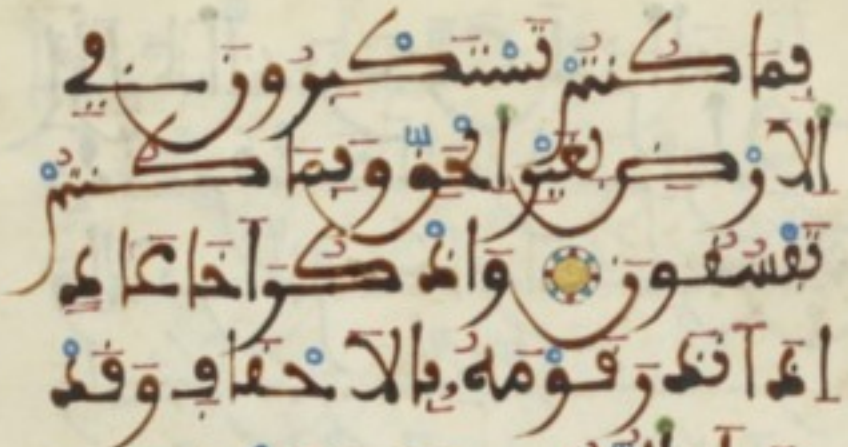 بِمَا كُنتُمْ تَسْتَكْبِرُونَ فِي
الْأَرْضِ بِغَيْرِ الْحَقِّ وَبِمَا كُنتُمْ
تَفْسُقُونَ وَاذْكُرْ أَخَا عَادٍ
إِذْ أَنذَرَ قَوْمَهُ بِالْأَحْقَافِ وَقَدْ